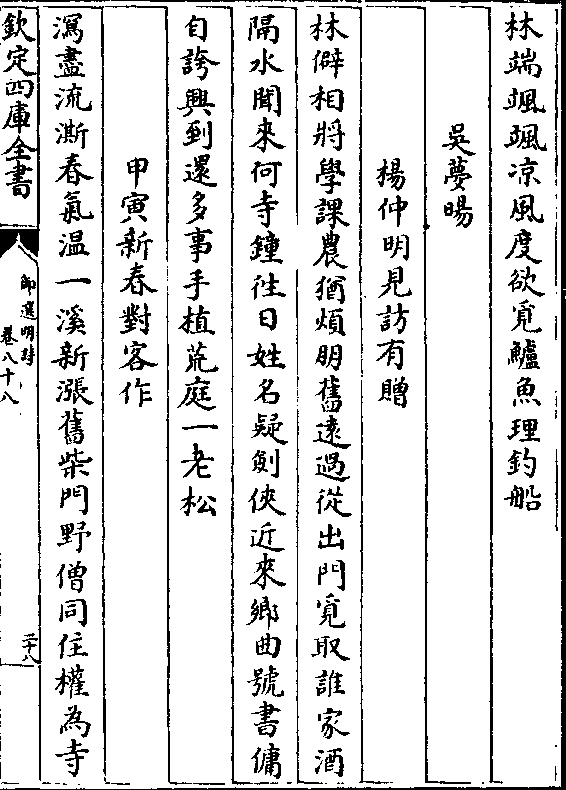 林端颯颯凉風度欲覓鱸魚理釣船
吳夢暘
楊仲明見訪有贈
林僻相將學課農猶煩朋舊遠過從出門覓取誰家酒
隔水聞來何寺鐘徃日姓名疑劍俠近來鄉曲號書傭
自誇興到還多事手植荒庭一老松
甲寅新春對客作
瀉盡流澌春氣温一溪新漲舊柴門野僧同住權為寺
欽定四庫全書
御選明詩
卷八十八
二十八